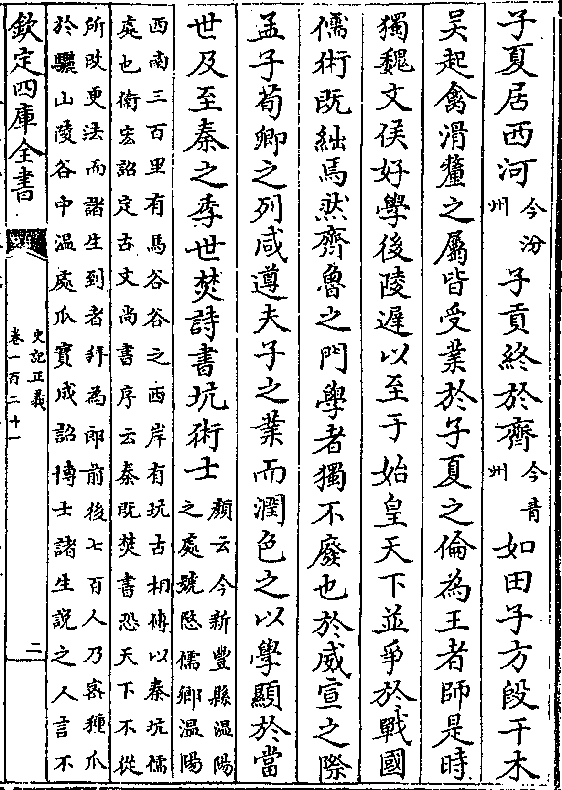 子夏居西河今汾州子貢終於齊今青州如田子方段干木
吳起禽滑釐之屬皆受業於子夏之倫為王者師是時
獨魏文侯好學後陵遲以至于始皇天下並爭於戰國
儒術既絀焉然齊魯之門學者獨不廢也於威宣之際
孟子荀卿之列咸遵夫子之業而潤色之以學顯於當
世及至秦之季世焚詩書坑術士顏云今新豐縣溫陽之處號愍儒鄉溫陽
西南三百里有馬谷谷之西岸有坑古相傳以秦坑儒
處也衛宏詔定古文尚書序云秦既焚書恐天下不從
所改更法而諸生到者拜為郎前後七百人乃密種瓜
於驪山陵谷中溫處瓜實成詔博士諸生說之人言不
欽定四庫全書
史記正義
卷一百二十一
二